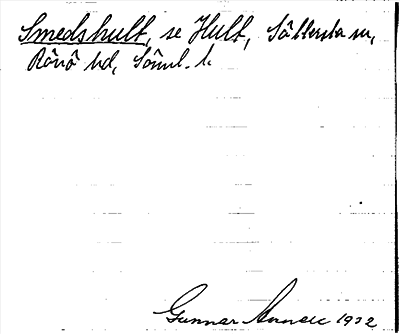 Smedshult, se Hult, Sättersta sn,
Rönö hd, Söml. l.
Gunnar 1932